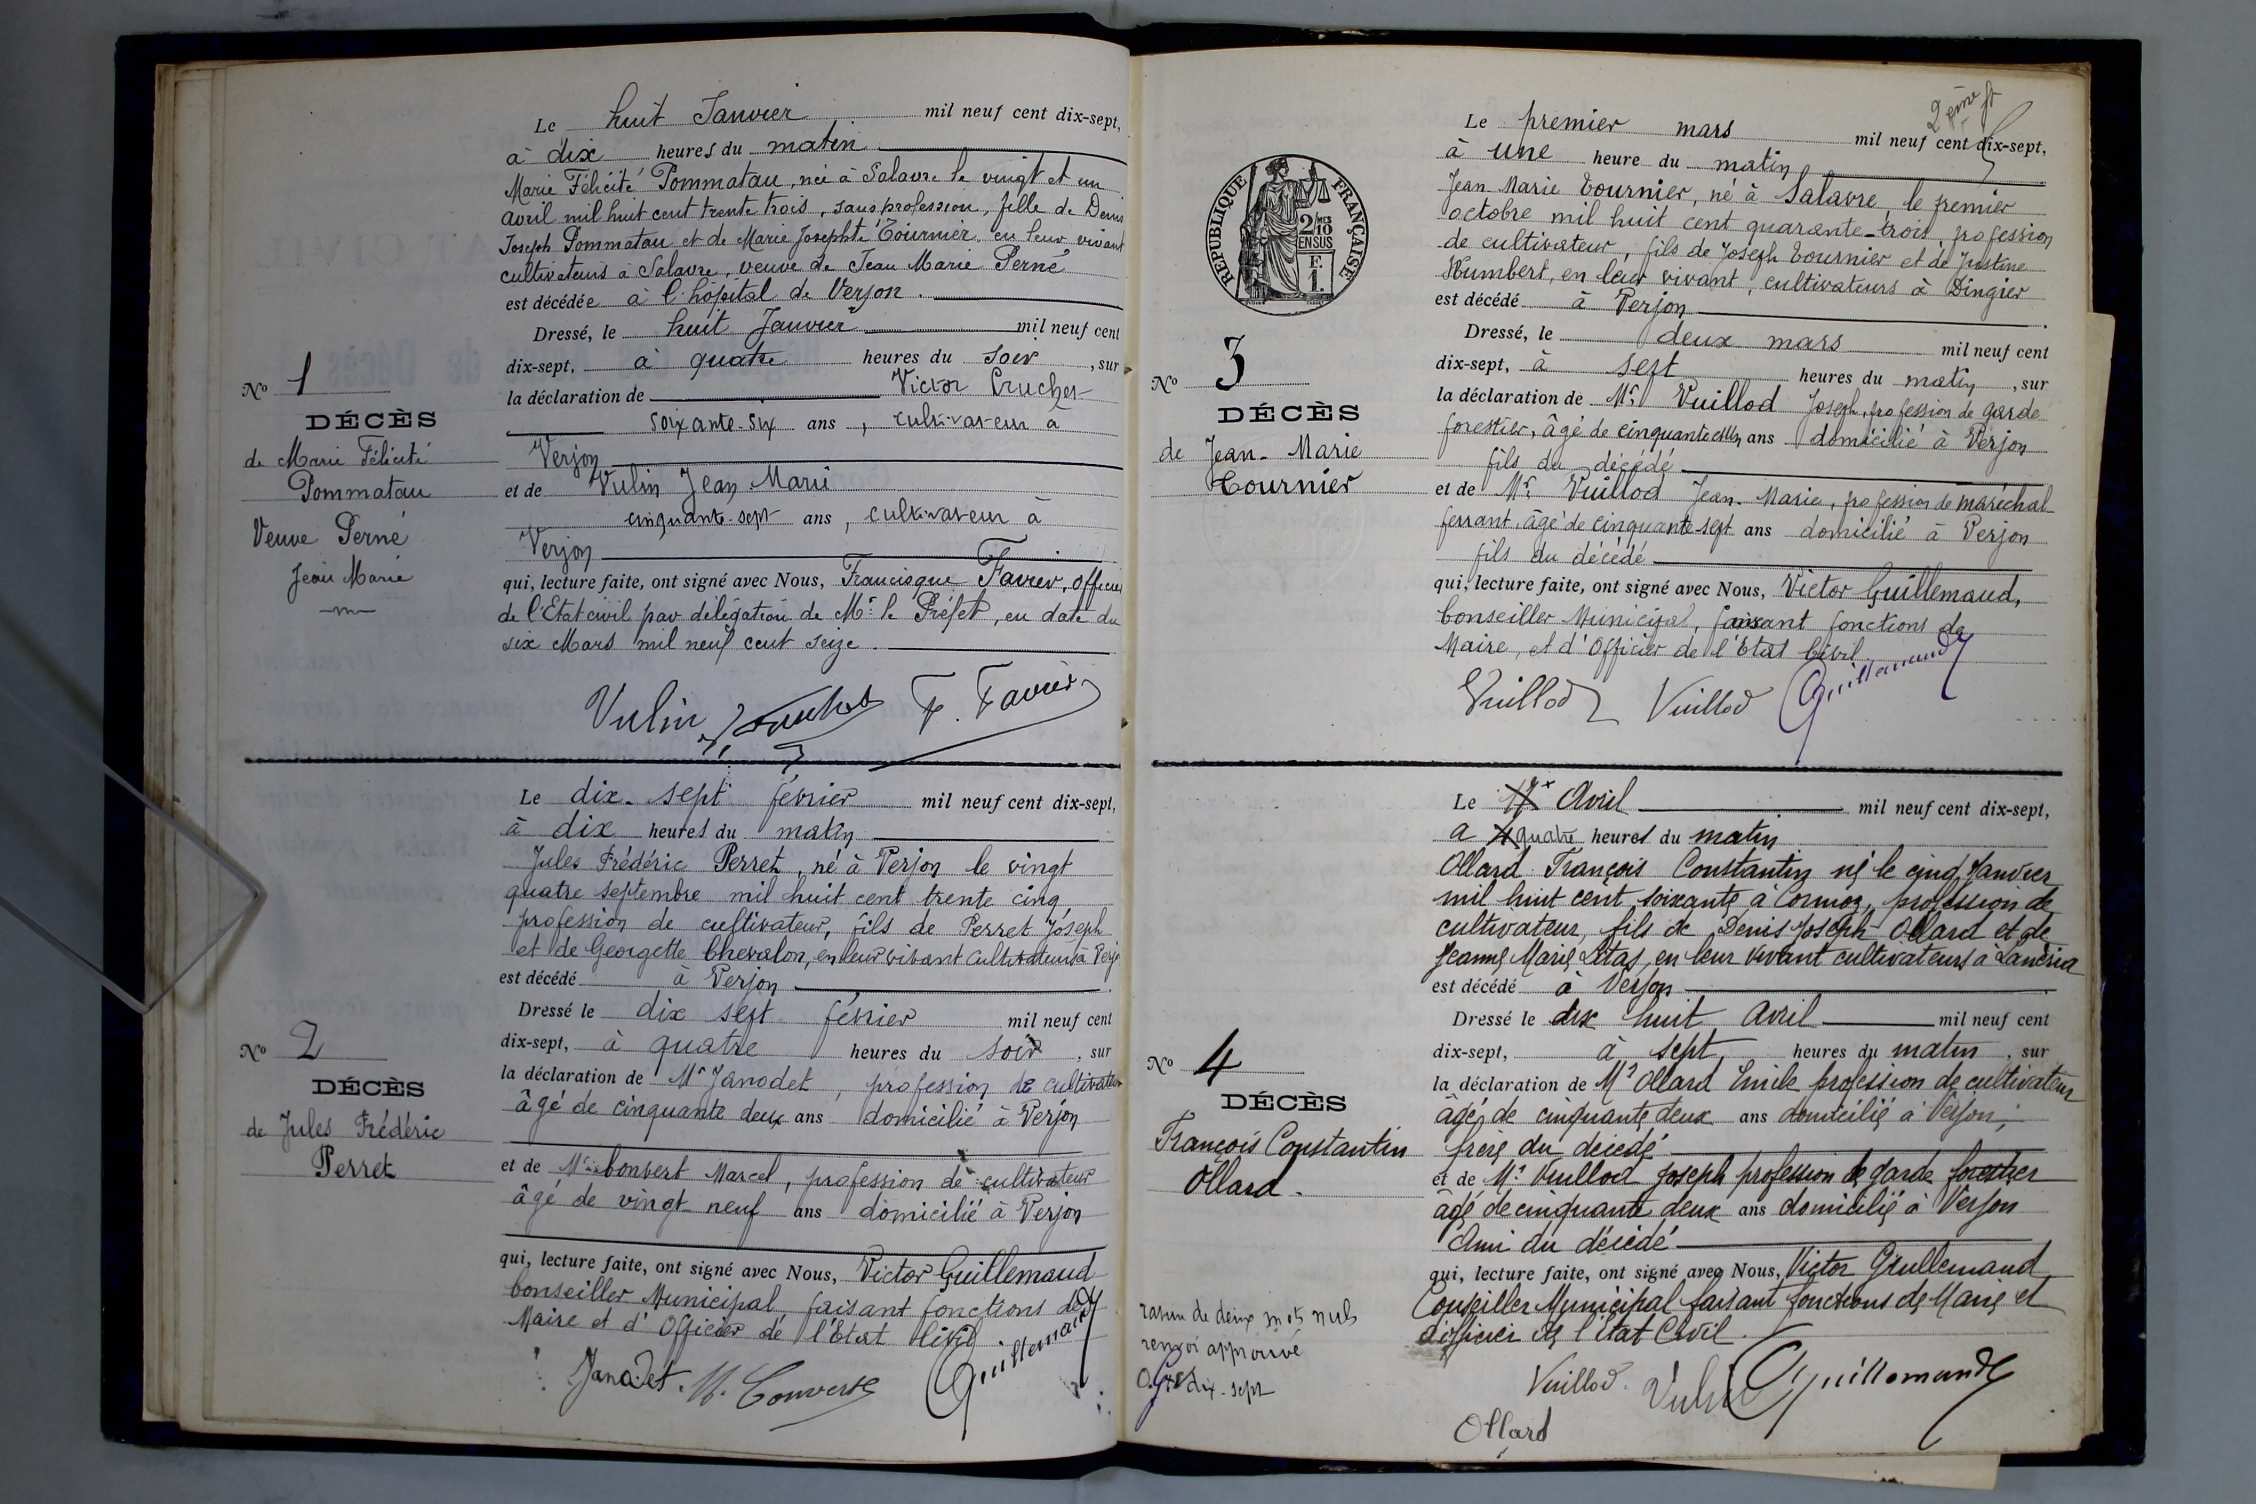 Le huit Janvier mil neuf cent dix-sept,
à dix heures du matin
Marie Félicité Pommatau, née à Salavre le vingt et un
avril mil huit cent trente trois, sans profession, fille de Denis
Joseph Pommatau et de Marie Josephte Tournier, en leur vivant
cultivateurs à Salavre, veuve de Jean Marie Perné
est décédée à l'hôpital de Verjon.
Dressé, le huit Janvier mil neuf cent
dix-sept, à quatre heures du soir, sur
la déclaration de Victor Cruchet
soixante-six ans, cultivateur à
Verjon
et de Vulin Jean Marie
cinquante-sept ans, cultivateur à
Verjon
qui, lecture faite, ont signé avec Nous, Francisque Favier, Officier
de l'Etat civil par délégation de Mr le Préfet, en date du
six Mars mil neuf cent seize.
Vulin Cruchet F. Favier
No 1
DÉCÈS
de Marie Félicité
Pommatau
Veuve Perné
Jean Marie
Le dix-sept février mil neuf cent dix-sept,
à dix heures du matin
Jules Frédéric Perret, né à Verjon le vingt
quatre septembre mil huit cent trente cinq,
profession de cultivateur, fils de Perret Joseph
et de Georgette Chevalon, en leur vivant cultivateurs à Verjon
est décédé à Verjon
Dressé le dix sept février mil neuf cent
dix-sept, à quatre heures du soir, sur
la déclaration de Mr Janodet, profession de cultivateur
âgé de cinquante deux ans domicilié à Verjon
et de Mr Convert Marcel, profession de cultivateur
âgé de vingt neuf ans domicilié à Verjon
qui, lecture faite, ont signé avec Nous, Victor Guillemaud
Conseiller Municipal, faisant fonctions de
Maire et d'Officier de l'Etat Civil
Janodet. M. Convert Guillemaud
No 2
DÉCÈS
de Jules Frédéric
Perret
2ème ft
RÉPUBLIQUE FRANÇAISE
2/10
EN SUS
F.
1.
Le premier mars mil neuf cent dix-sept,
à une heure du matin
Jean Marie Tournier, né à Salavre, le premier
octobre mil huit cent quarante-trois, profession
de cultivateur, fils de Joseph Tournier et de Justine
Humbert, en leur vivant, cultivateurs à Dingier
est décédé à Verjon
Dressé, le deux mars mil neuf cent
dix-sept, à sept heures du matin, sur
la déclaration de Mr Vuillod Joseph, profession de garde
forestier, âgé de cinquante ans domicilié à Verjon
fils du décédé
et de Mr Vuillod Jean-Marie, profession de maréchal
ferrant, âgé de cinquante-sept ans domicilié à Verjon
fils du décédé
qui, lecture faite, ont signé avec Nous, Victor Guillemaud,
Conseiller Municipal, faisant fonctions de
Maire, et d'Officier de l'Etat Civil
Vuillod Vuillod Guillemaud
No 3
DÉCÈS
de Jean-Marie
Tournier
Le 17 Avril mil neuf cent dix-sept,
à 4 quatre heures du matin
Ollard François Constantin né le cinq Janvier
mil huit cent soixante à Cormoz, profession de
cultivateur, fils de Denis Joseph Ollard et de
Jeanne Marie Litas, en leur vivant cultivateurs à Lanéria
est décédé à Verjon
Dressé le dix huit Avril mil neuf cent
dix-sept, à sept heures du matin, sur
la déclaration de Mr Ollard Emile profession de cultivateur
âgé de cinquante deux ans domicilié à Verjon,
frère du décédé
et de Mr Vuillod Joseph profession de garde forestier
âgé de cinquante deux ans domicilié à Verjon
Ami du décédé
qui, lecture faite, ont signé avec Nous, Victor Guillemaud
Conseiller Municipal faisant fonctions de Maire et
d'officier de l'Etat Civil.
Vuillod. Vulin Guillemaud
Ollard
No 4
DÉCÈS
François Constantin
Ollard.
rature de deux mots nuls
renvoi approuvé
dix-sept